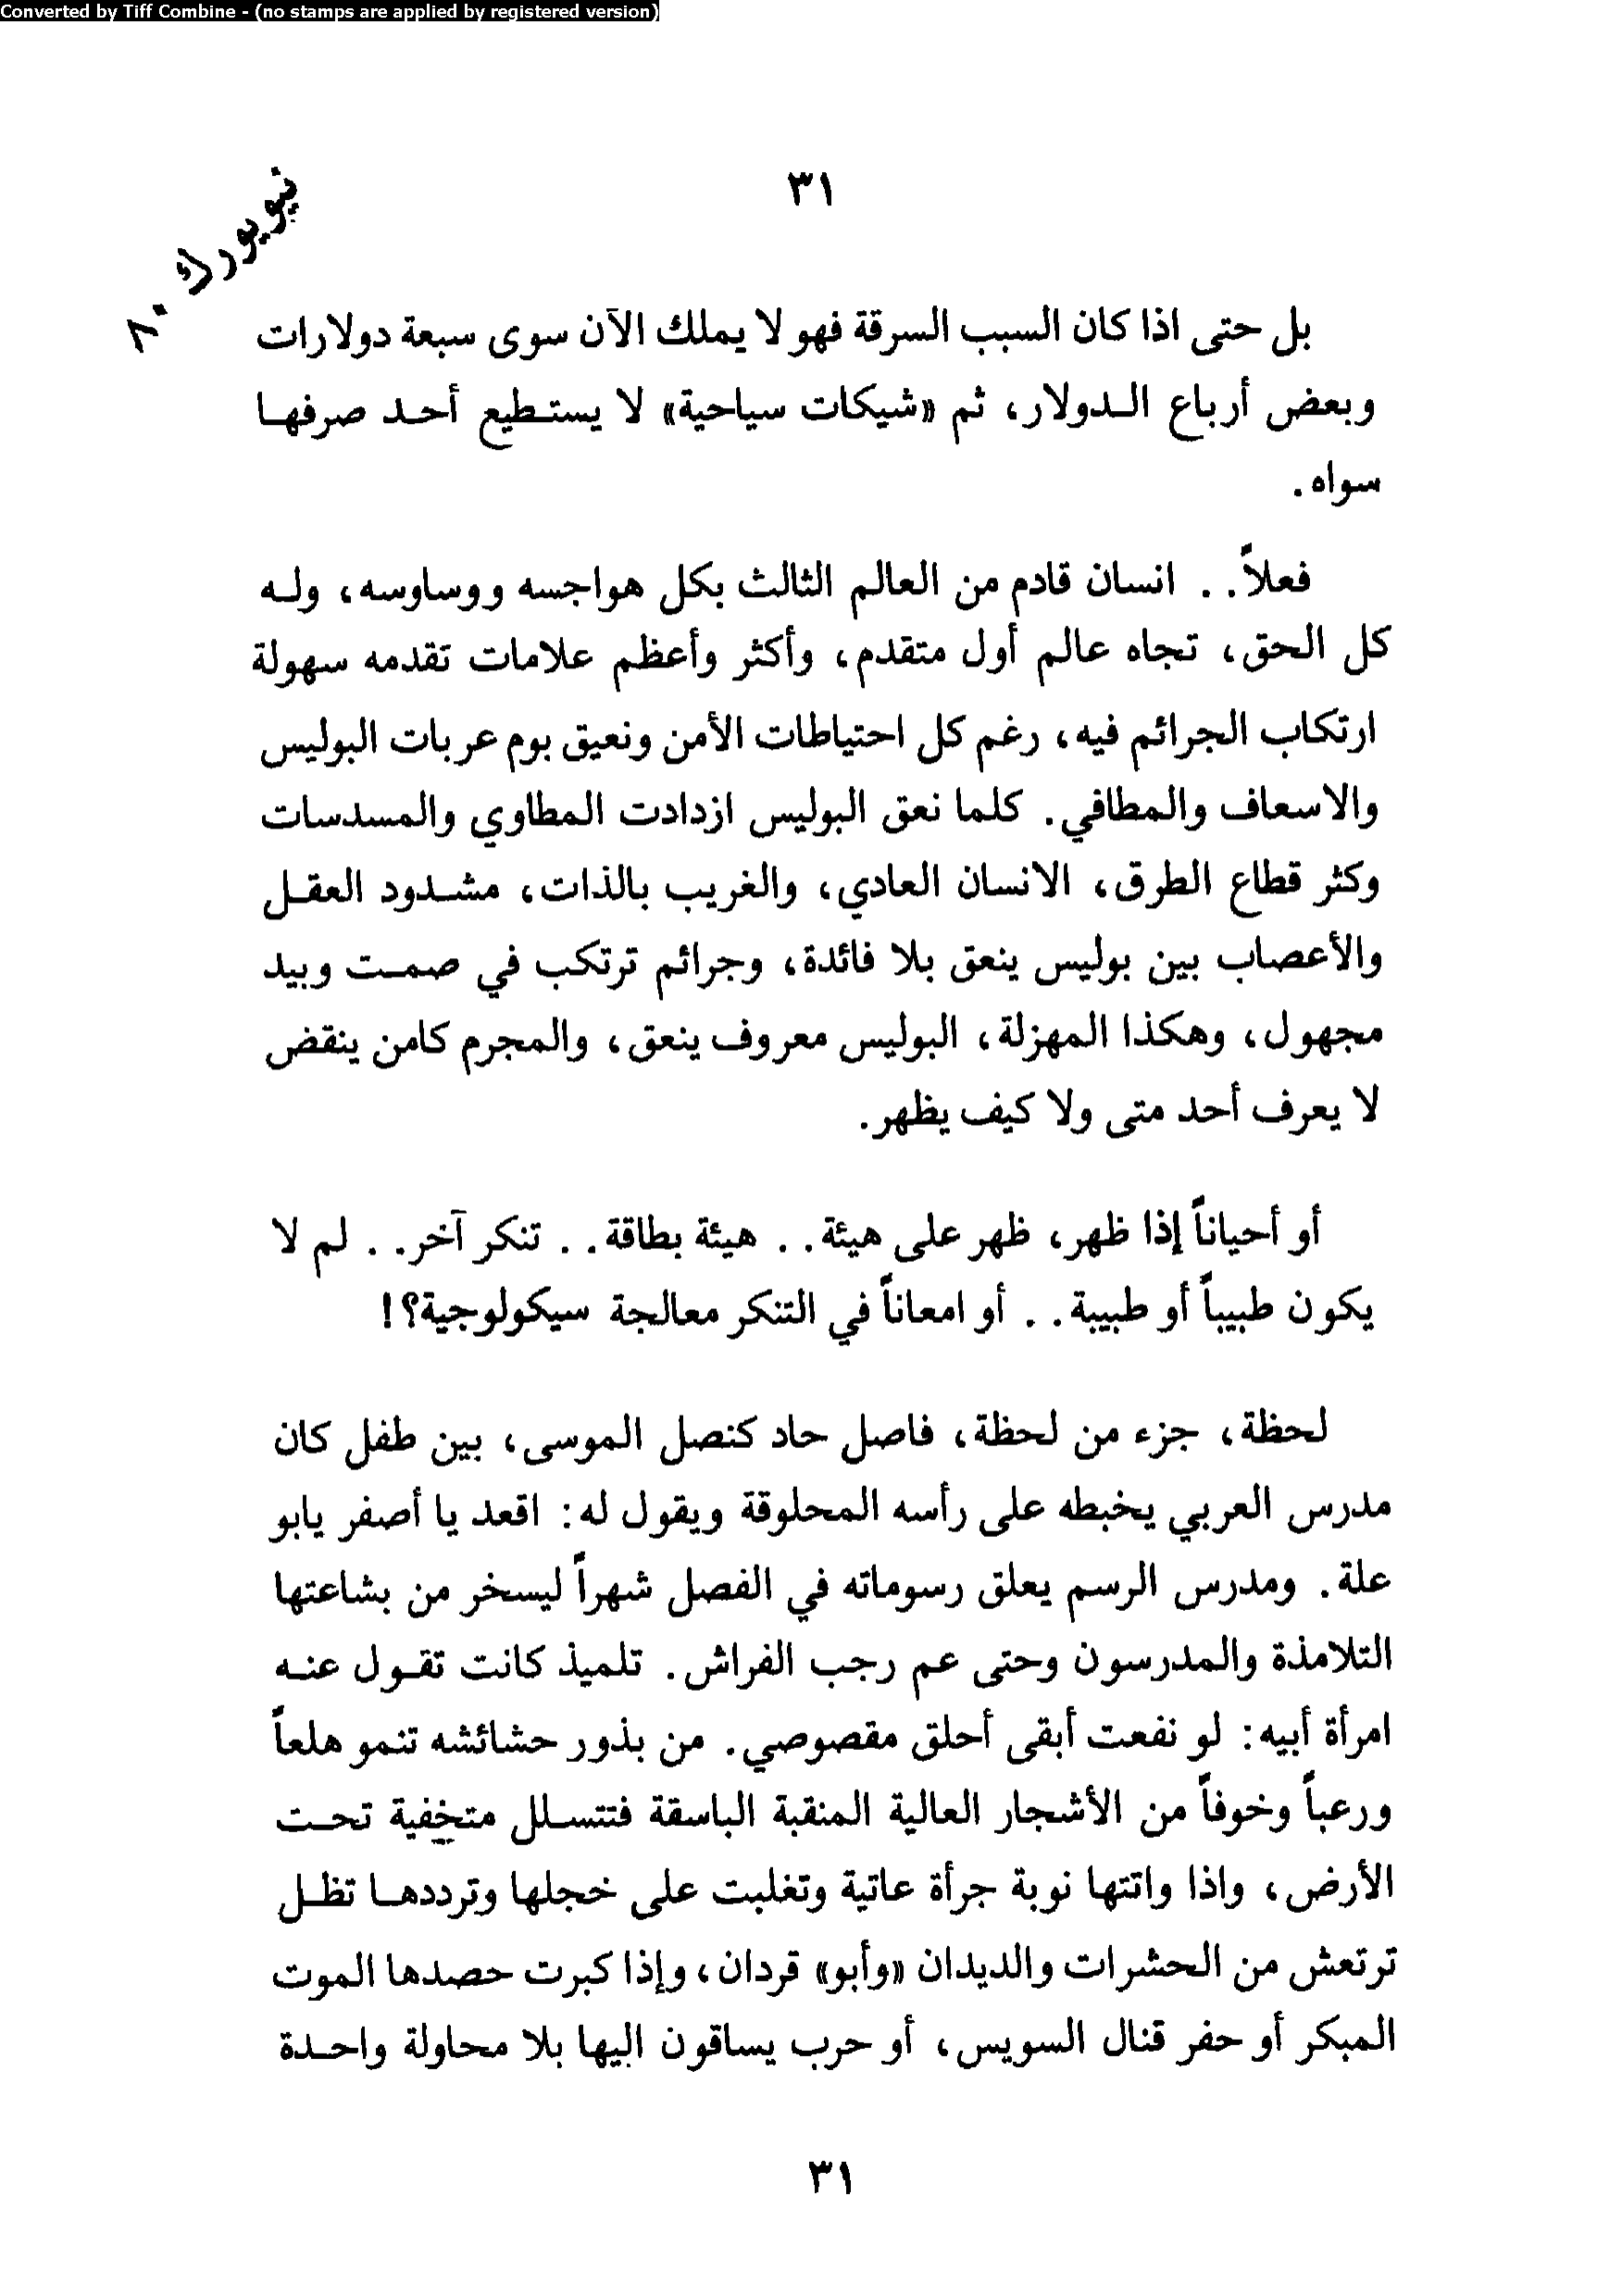 Converted by Tiff Combine - (no stamps are applied by registered version)
٣١
نيويورك ٨٠
بل حتى اذا كان السبب السرقة فهو لا يملك الآن سوى سبعة دولارات
وبعض أرباع الدولار، ثم «شيكات سياحية» لا يستطيع أحد صرفها
سواه.
فعلاً.. انسان قادم من العالم الثالث بكل هواجسه ووساوسه، وله
كل الحق، تجاه عالم أول متقدم، وأكثر وأعظم علامات تقدمه سهولة
ارتكاب الجرائم فيه، رغم كل احتياطات الأمن ونعيق بوم عربات البوليس
والاسعاف والمطافي. كلما نعق البوليس ازدادت المطاوي والمسدسات
وكثر قطاع الطرق، الانسان العادي، والغريب بالذات، مشدود العقل
والأعصاب بين بوليس ينعق بلا فائدة، وجرائم ترتكب في صمت وبيد
مجهول، وهكذا المهزلة، البوليس معروف ينعق، والمجرم كامن ينقض
لا يعرف أحد متى ولا كيف يظهر.
أو أحياناً إذا ظهر، ظهر على هيئة.. هيئة بطاقة.. تنكر آخر.. لم لا
يكون طبيباً أو طبيبة.. أو امعاناً في التنكر معالجة سيكولوجية؟!
لحظة، جزء من لحظة، فاصل حاد كنصل الموسى، بين طفل كان
مدرس العربي يخبطه على رأسه المحلوقة ويقول له: اقعد يا أصفر يابو
علة. ومدرس الرسم يعلق رسوماته في الفصل شهراً ليسخر من بشاعتها
التلامذة والمدرسون وحتى عم رجب الفراش. تلميذ كانت تقول عنه
امرأة أبيه: لو نفعت أبقى أحلق مقصوصي. من بذور حشائشه تنمو هلعاً
ورعباً وخوفاً من الأشجار العالية المنقبة الباسقة فتتسلل متخفية تحت
الأرض، واذا واتتها نوبة جرأة عاتية وتغلبت على خجلها وترددها تظل
ترتعش من الحشرات والديدان «وأبو» قردان، وإذا كبرت حصدها الموت
المبكر أو حفر قنال السويس، أو حرب يساقون اليها بلا محاولة واحدة
٣١